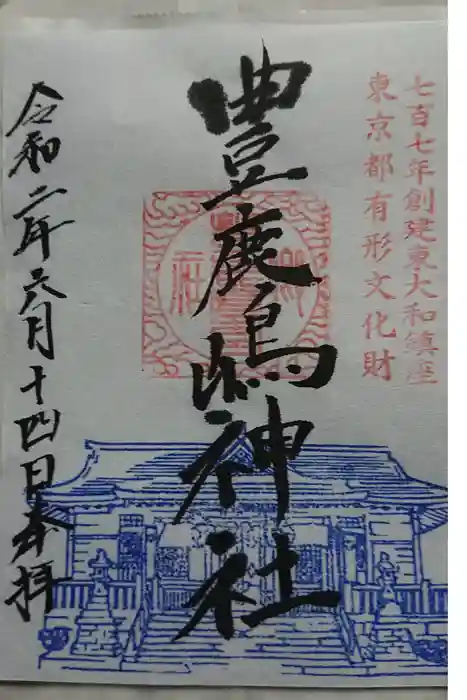 七百七年創建東大和鎮座
東京都有形文化財
豊鹿嶋神社
令和二年六月十四日奉拝